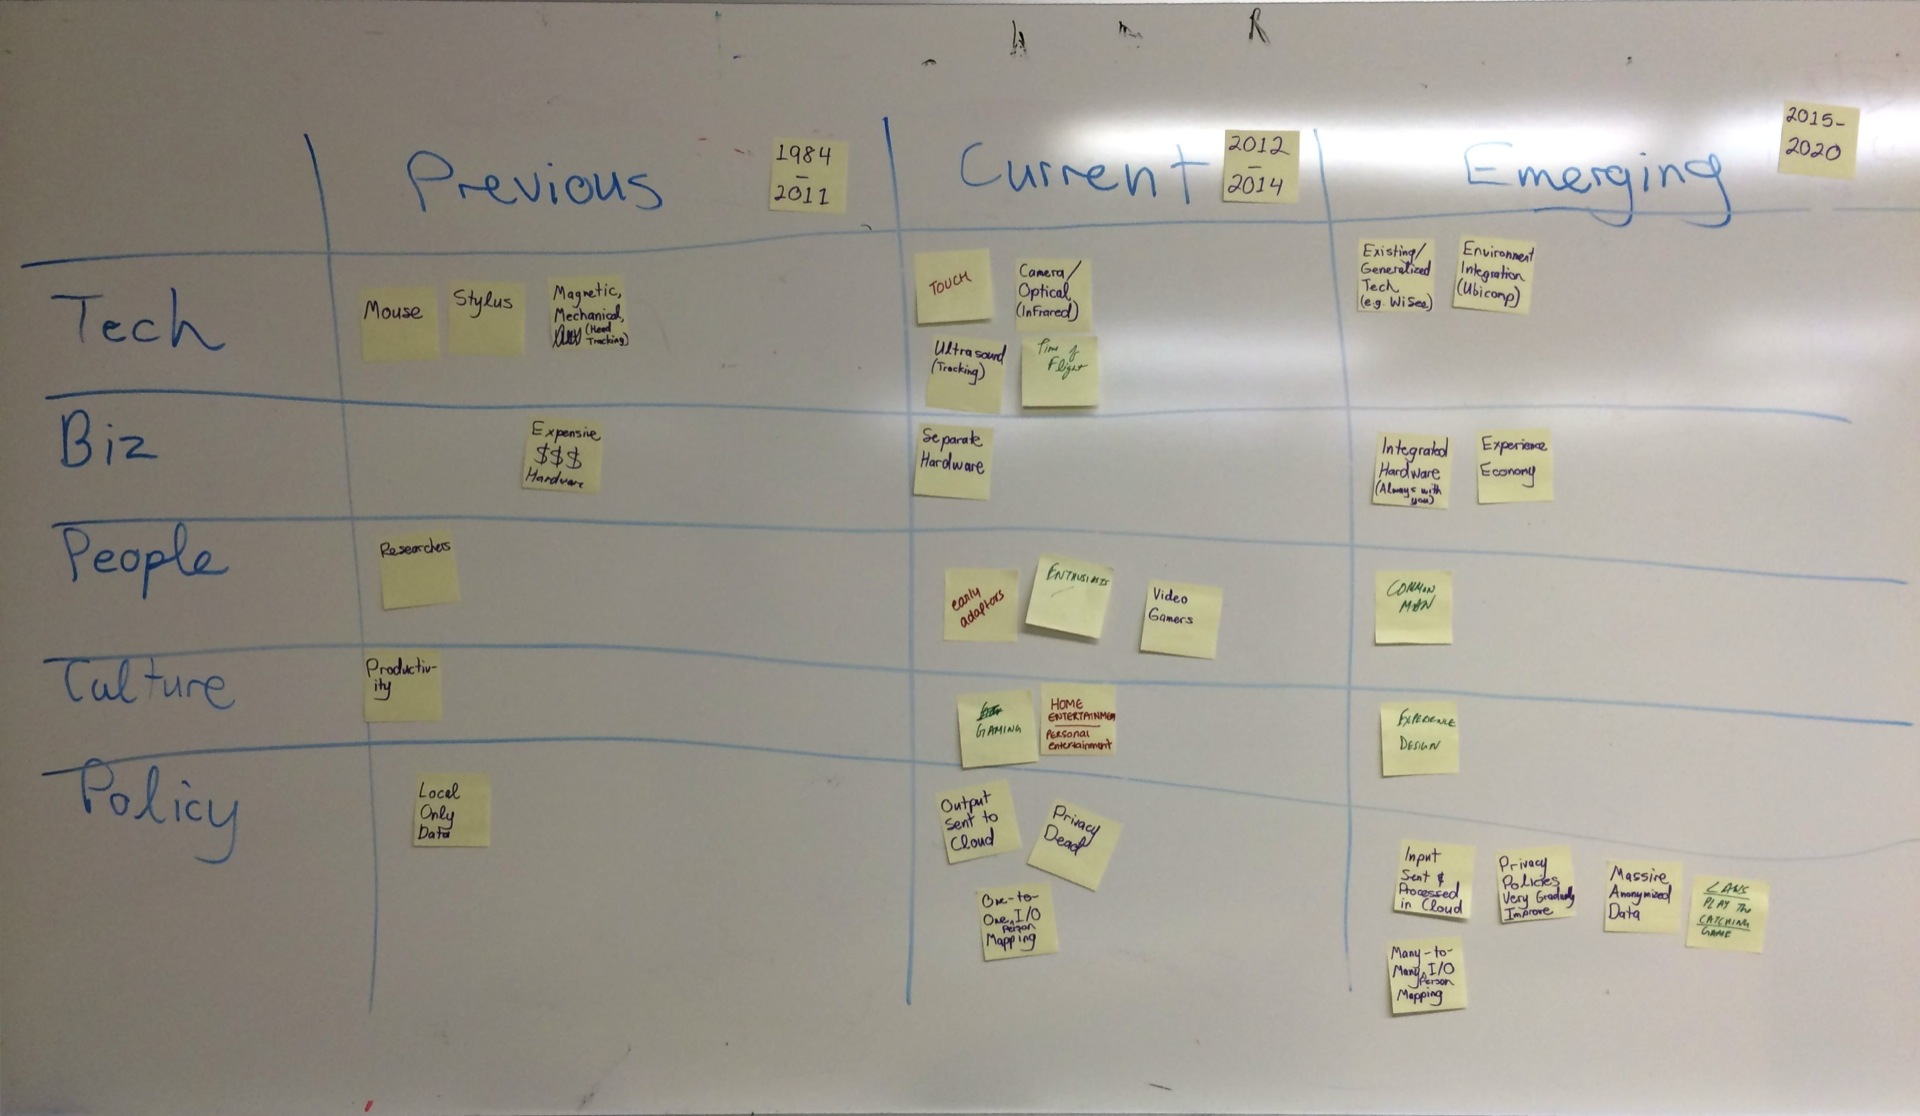 h m R
Previous
1984
-
2011
Current
2012
-
2014
Emerging
2015-
2020
Tech
Mouse
Stylus
Magnetic,
Mechanical,
(Head
Tracking)
TOUCH
Camera/
Optical
(InFrared)
Ultrasound
(Tracking)
Time of
Flight
Existing/
Generalized
Tech
(e.g. WiSee)
Environment
Integration
(Ubicomp)
Biz
Expensive
$$$
Hardware
Separate
Hardware
Integrated
Hardware
(Always with
you)
Experience
Economy
People
Researchers
early
adaptors
ENTHUSIASTS
Video
Gamers
COMMON
MAN
Culture
Productiv-
ity
GAMING
HOME
ENTERTAINMEN
PERSONAL
entertainment
EXPERIENCE
DESIGN
Policy
Local
Only
Data
Output
Sent to
Cloud
Privacy
Dead
One-to-
One I/O
Person
Mapping
Input
Sent &
Processed
in Cloud
Privacy
Policies
Very Gradually
Improve
Massive
Anonymized
Data
LAWS
PLAY THE
CATCHING
GAME
Many-to-
Many I/O
Person
Mapping